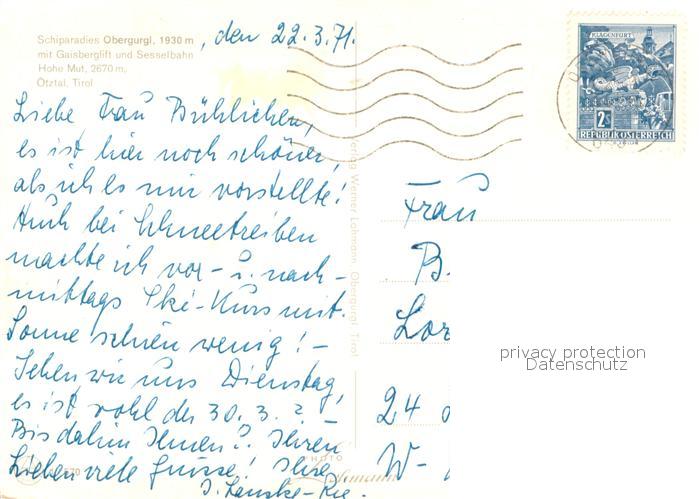 Schiparadies Obergurgl, 1930 m
mit Gaisberglift und Sesselbahn
Hohe Mut, 2670 m,
Ötztal, Tirol
, den 22.3.71.
Liebe Frau
es ist hier noch schöner,
als ich es mir vorstellte!
Auch bei Schneetreiben
machte ich vor- u. nach-
mittags Ski-Kurs mit.
Sonne schien wenig! –
Sehen wir uns Dienstag,
es ist wohl der 30.3.? –
Bis dahin Ihnen u. Ihren
Lieben viele Grüsse! Ihre
Verlag Werner Lohmann, Obergurgl, Tirol
PHOTO
KLAGENFURT
2S
REPUBLIK ÖSTERREICH
Frau
B.
24
W-
privacy protection
Datenschutz